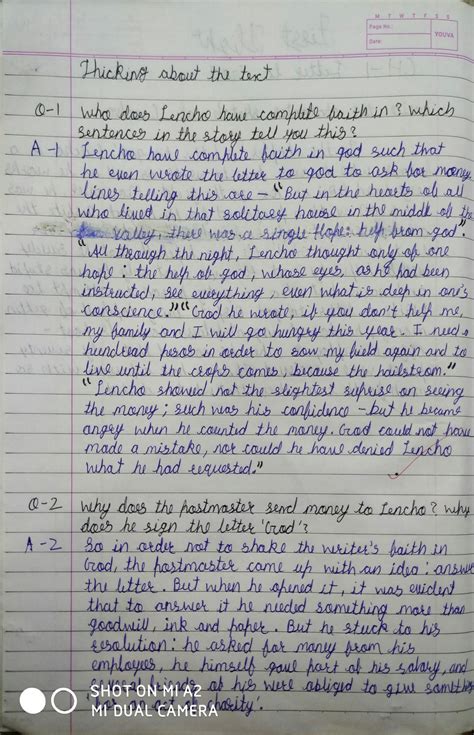 M T W T F S S
Page No.:
Date:
YOUVA
Thicking about the text
Q-1 who does Lencho have complete faith in? which
sentences in the story tell you this?
A-1 Lencho have complete faith in god such that
he even wrote the letter to god to ask for money.
lines telling this are - "But in the hearts of all
who lived in that soletary house in the middle of the
valley, there was a single hope: help from god".
"All through the night, Lencho thought only of one
hope: the help of god, whose eyes, as he had been
instructed, see everything, even what is deep in one's
conscience." "God he wrote, if you don't help me,
my family and I will go hungry this year. I need a
hundread pesos in order to sow my field again and to
live until the crops comes, because the hailstrom."
"Lencho showed not the slightest suprise on seeing
the money; such was his confidence - but he became
angry when he counted the money. God could not have
made a mistake, nor could he have denied Lencho
what he had requested."
Q-2 why does the postmaster send money to Lencho? why
does he sign the letter 'God'?
A-2 So in order not to shake the writer's faith in
God, the postmaster came up with an idea: answer
the letter. But when he opened it, it was evident
that to answer it he needed something more than
goodwill, ink and paper. But he stuck to his
resolution: he asked for money from his
employees, he himself gave part of his salary, and
several friends of his were obliged to give something
'for an act of charity'.
SHOT ON MI A2
MI DUAL CAMERA